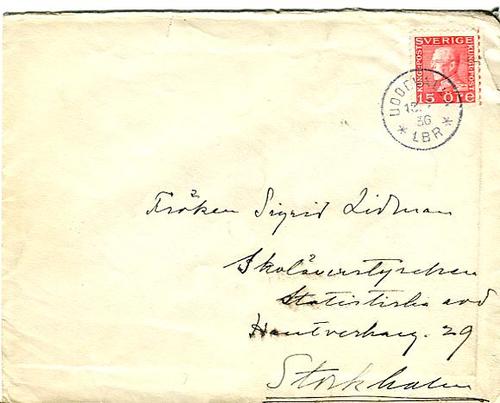 SVERIGE
KUNGL·POST
KUNGL·POST
15 ÖRE
UDDEVALLA
15. 36
* LBR *
Fröken Sigrid Lidman
Skolöverstyrelsen
Statistiska avd
Hantverkareg. 29
Stockholm